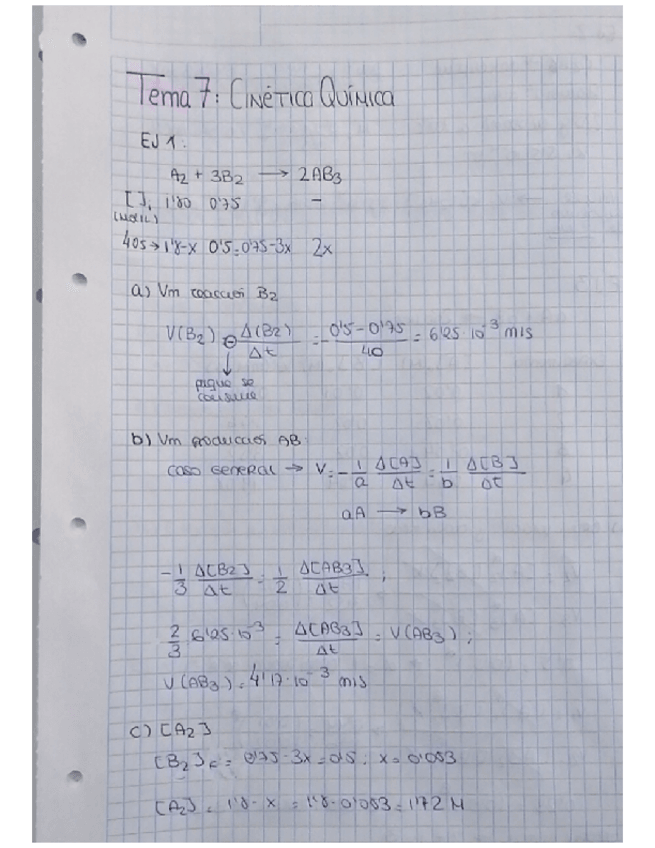 Tema 7: CINÉTICA QUÍMICA
EJ 1:
A2 + 3B2 → 2AB3
[ ]i 1'80 0'75 -
(mol/L)
40s → 1'8-x 0'5=0'75-3x 2x
a) Vm reacción B2
V(B2) = - Δ(B2)/Δt = - 0'5-0'75/40 = 6'25·10^-3 m/s
↓
porque se
consume
b) Vm producción AB
CASO GENERAL → V = - 1/a Δ[A]/Δt = 1/b Δ[B]/Δt
aA → bB
- 1/3 Δ[B2]/Δt = 1/2 Δ[AB3]/Δt ;
2/3 6'25·10^-3 = Δ[AB3]/Δt = V(AB3) ;
V(AB3) = 4'17·10^-3 m/s
c) [A2]
[B2]f = 0'75-3x = 0'5 ; x = 0'083
[A2] = 1'8 - x = 1'8-0'083 = 1'72 M